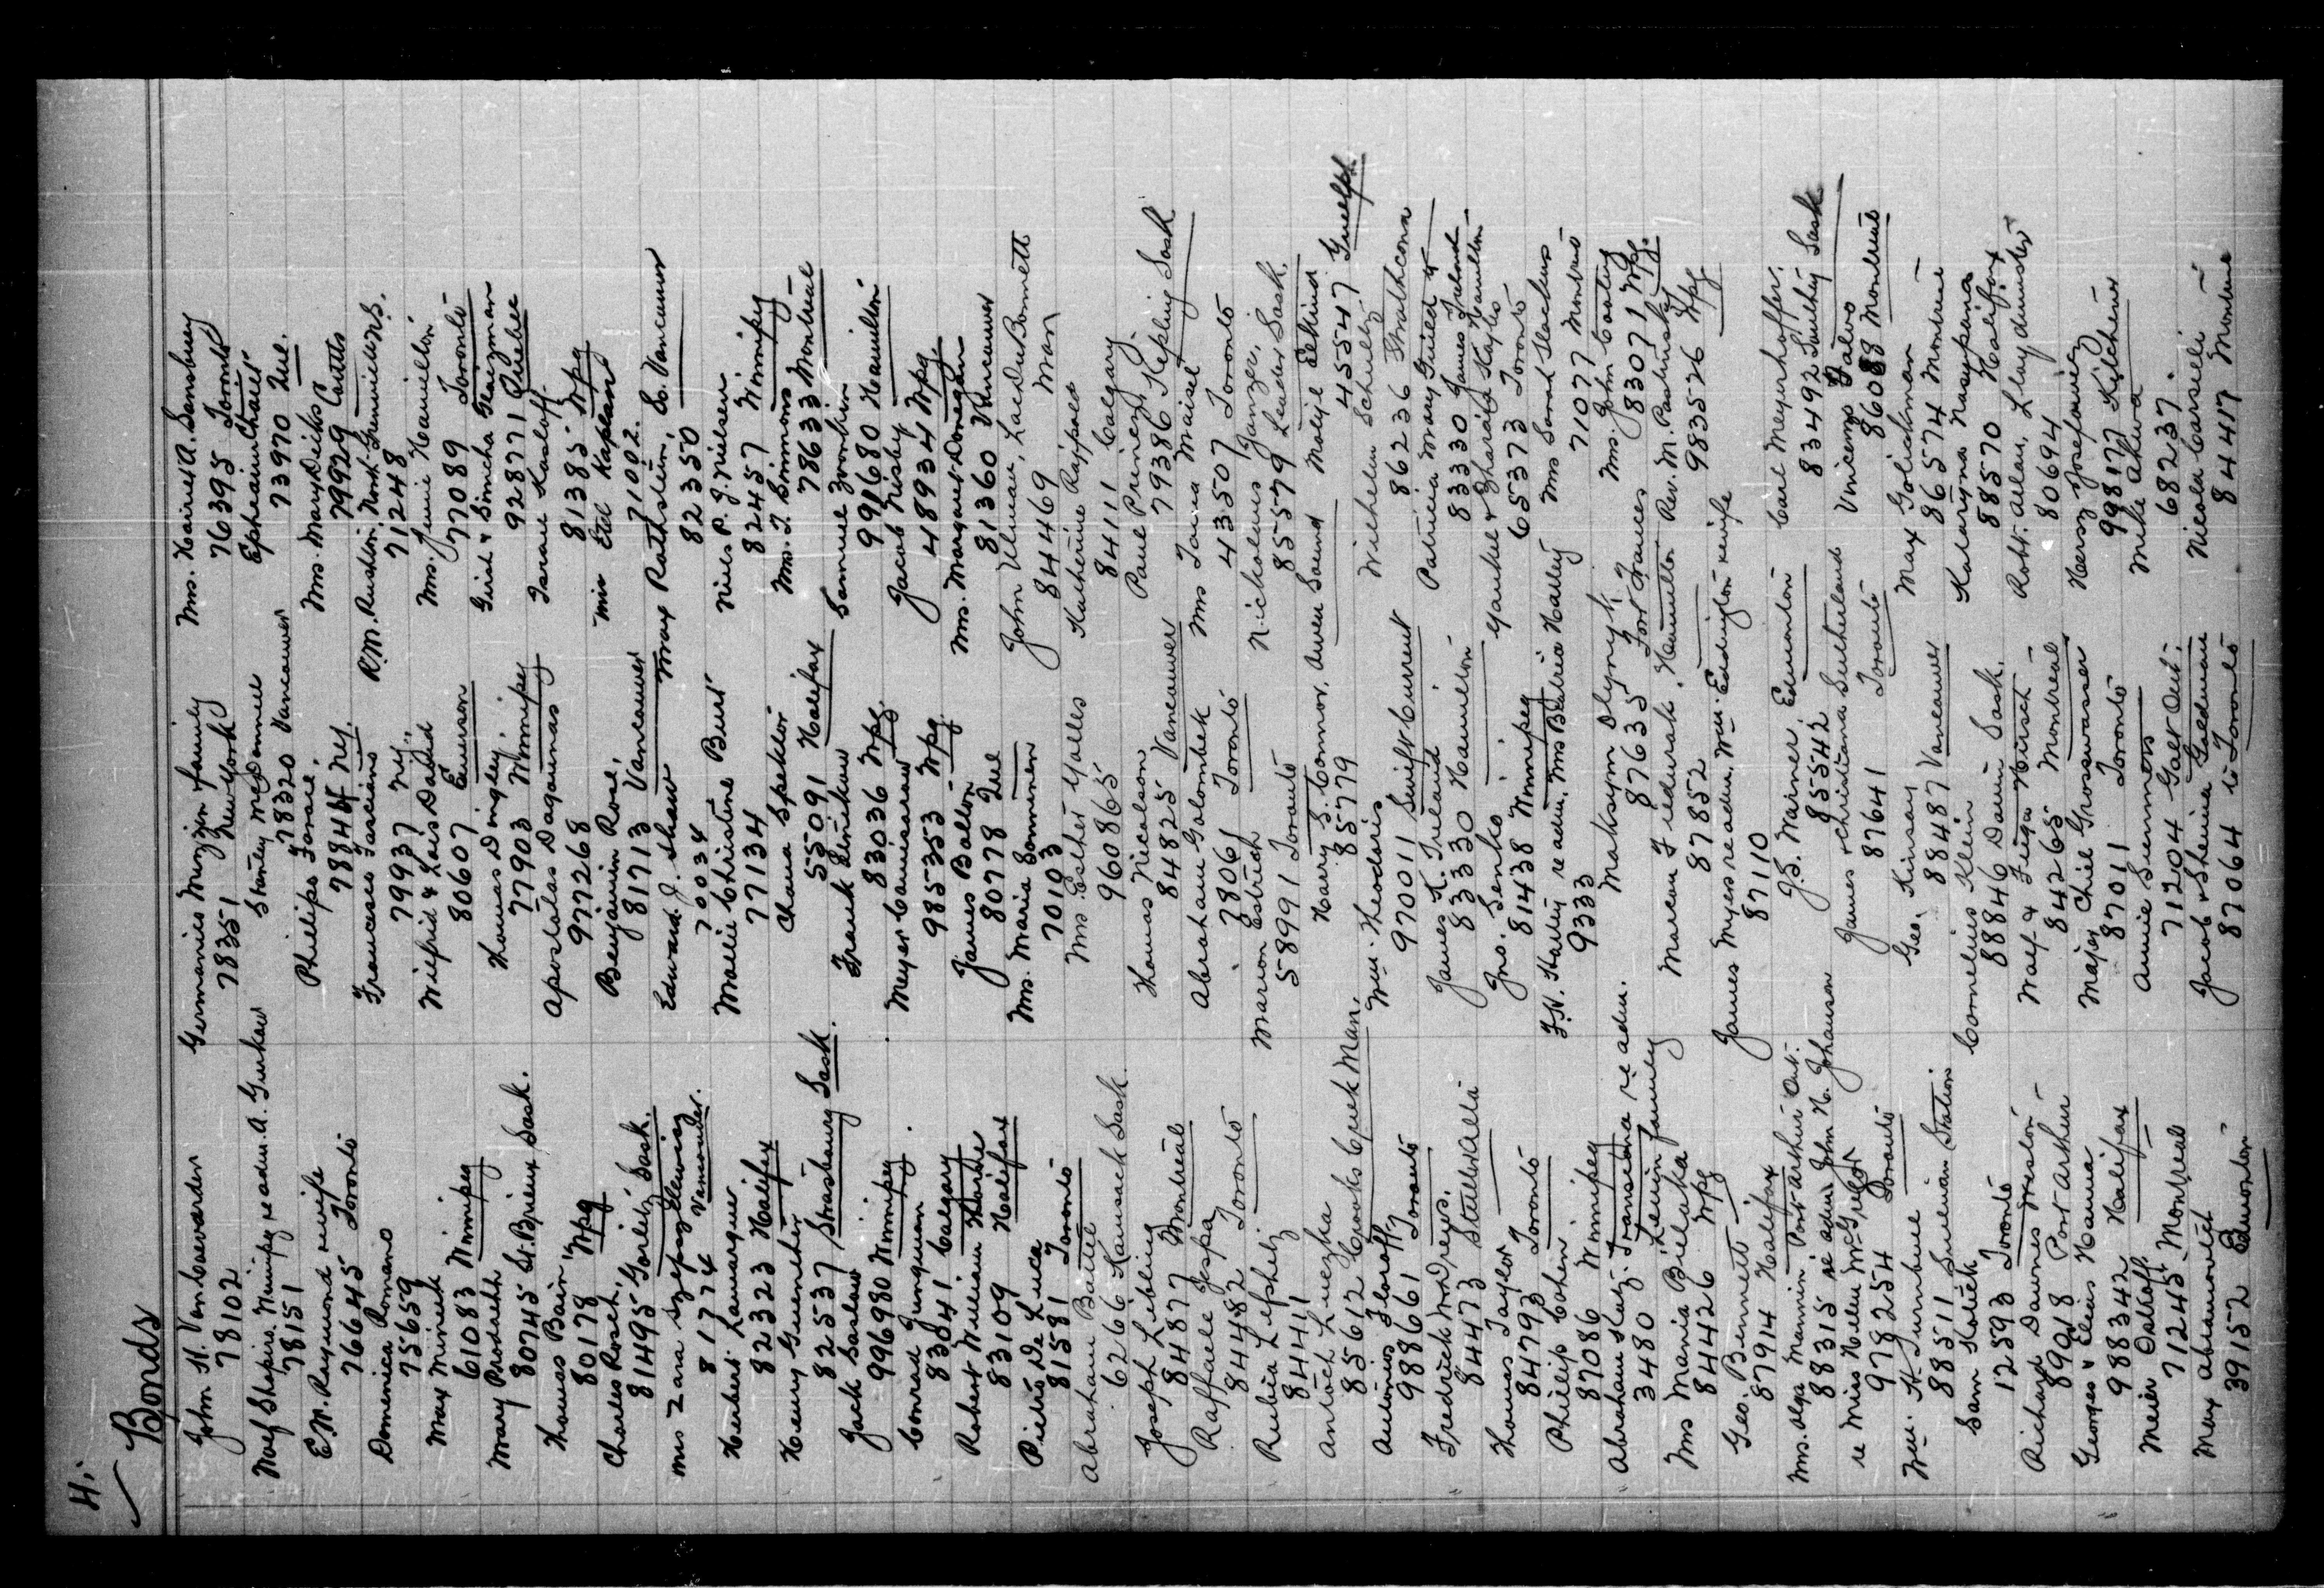 4.
Bonds
John H. Van Coevarden
78102
Wolf Shapiro. Winnipeg re adm. A. Gurkow
78151
E.M. Raymond & wife
76645 Toronto
Domenica Romano
75659
Max Mineuk
61083 Winnipeg
Mary Prodrehk
80745 St. Brieux Sask.
Thomas Bain
80178 Wpg
Charles Rosch,
81495 Gorlitz Sask.
Mrs Zara
81774 Vancouver.
Herbert Lanarquer
82323 Halifax
Henry Guenther
82537 Strasbourg Sask.
Jack Saslow
996980 Winnipeg
Conrad Jungman
83041 Calgary
Robert William Thorne
83109 Halifax
Pietro De Luca
81581 Toronto
Abraham Battel
6266 Kamsack Sask.
Joseph Libling
84877 Montreal
Raffaele Jespa
84482 Toronto
Rubia Lifshitz
84411
Antoch Luezka
85612 Hooks Creek Man.
Antonios Floroff
988661 Toronto
Fredrick Wm Dreyes.
84473 Stettler Alta
Thomas Taylor
84793 Toronto
Philip Cohen
87086 Winnipeg
Abraham Katz. Transcona re adm.
3480 Levin family
Mrs Maria Bielaka
84426 Wpg
Geo. Bennett
87914 Halifax
Mrs. Olga Mannin Port Arthur Ont.
88315 re adm. John N. Johanson
re Miss Helen McGregor
978254 Toronto
Wm. H. Turnbull
88511 Station
Sam Kolick
12593 Toronto
Richard Dawnes Weston
89018 Port Arthur
Georges & Elias Hanna
988342 Halifax
Meier Ostroff
71245 Montreal
Max Abramovitch
39152 Edmonton
Germanies Muzzin family
78351 New York
Stanley McDonnell
78320 Vancouver
Philips Farace.
78844 N.Y.
Francesco Fasciano
79937 N.Y.
Wilfrid & Lois Dafied
80607 Emerson
Thomas Dingley.
77903 Winnipeg
Apostolas Dagounas
977268
Benjamin Rose,
81713 Vancouver
Edward J. Shaw
70034
Mollie Christine Burt
77134
Chana Spektor
55091 Halifax
Frank Klimkow
83036 Wpg.
Meyer Camisarow
985353 Wpg.
James Ballon
80778 Que
Mrs. Maria Sonninen
70103
Mrs. Esther Yalles
960865
Thomas Nicolson
84825 Vancouver
Abraham Golombek
78061 Toronto
Marion Estrich
58991 Toronto
Harry S. Connor, Owen Sound
85779
Wm. Theodoris
970011 Swift Current
James H. Ireland
83330 Hamilton
Jno. Senko
81438 Winnipeg
F.H. Harley re adm. Mrs Beatrice Halley
9333
Maksym Olynyk
87635 Fort Frances
Marcon Fidurak, Hamilton
87852
James Myes re adm. Wm. Eddington & wife
87110
J.S. Mainer Edmonton
85542
James & Christiana Sutherland
87641 Toronto
Geo. Kinsay
88487 Vancouver
Cornelius Klein
88846 Dann Sask.
Wolf & Feiga Hairsch
84265 Montreal
Major Chiel Grosswasser
87011 Toronto
Annie Summers
71204 Galt Ont.
Jacob & Sheina Goldman
87064 to Toronto
Mrs. Harriet A. Sansbury
76395 Toronto
Ephraim Chait
73970 Que.
Mrs. Mary Diks
79929 Coutts
R.M. Rushton North Granville N.S.
71248
Mrs. Jennie Hamilton
77089 Toronto
Girsh & Simcha Glazman
928771 Quebec
Israel Kasloff
81385 Wpg
Miss Etel Kaplan
71002.
Max Rothstein, So. Vancouver
82350
Niels P. J. Nielsen
82457 Winnipeg
Mrs. T. Simmons
78633 Montreal
Samuel Zvonkin
991680 Hamilton
Jacob Nisby
48934 Wpg.
Mrs. Margaret Donegan
81360 Vancouver
John Ulman, Lac Du Bonnett
84469 Man
Katherine Rajpold
84111 Calgary
Paul Prinez
79386 Kepling Sask
Mrs Toura Maisel
43507 Toronto
Nicholaus Janzer,
85579 Leader Sask.
Molye Elkind
45547 Guelph
Wilhelm Schultz
86236 Strathcona
Patricia Mary Guild &
83330 James Ireland
Hamilton
Yankel & Sharid Kaplio
65373 Toronto
Mrs Sarah Slackus
71077 Montreal
Mrs. John Coating
83071 Wpg.
Rev. M. Pastinsky
983526 Wpg
Carl Meyerhoffer.
83492 Southey Sask
Vincenzo Salvo
86088 Montreal
Max Golickman
86574 Montreal
Kataryna Nasypana
88570 Halifax
Robt. Allan, Lloydminster
80694
Hersz Josefowicz
998177 Kitchener
Mike Ahwa
68237.
Nicola Carselli
84417 Montreal